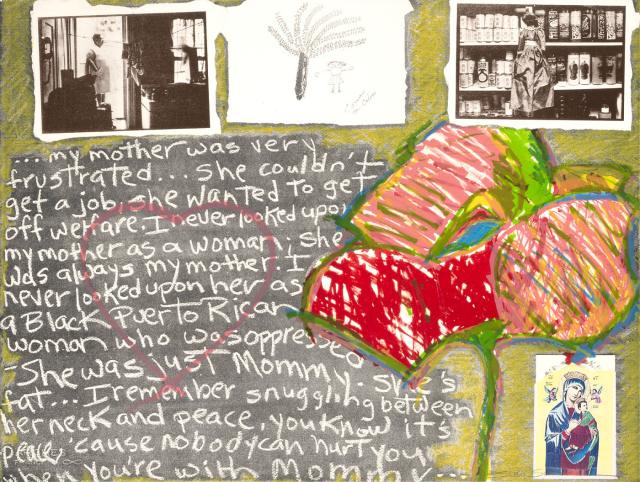 ... my mother was very
frustrated... she couldn't
get a job, she wanted to get
off welfare. I never looked upon
my mother as a woman, she
was always my mother. I
never looked upon her as
a Black Puerto Rican
woman who was oppressed
- She was just Mommy. she's
fat... I remember snuggling between
her neck and peace, you know it's
peace, 'cause nobody can hurt you
when you're with Mommy...